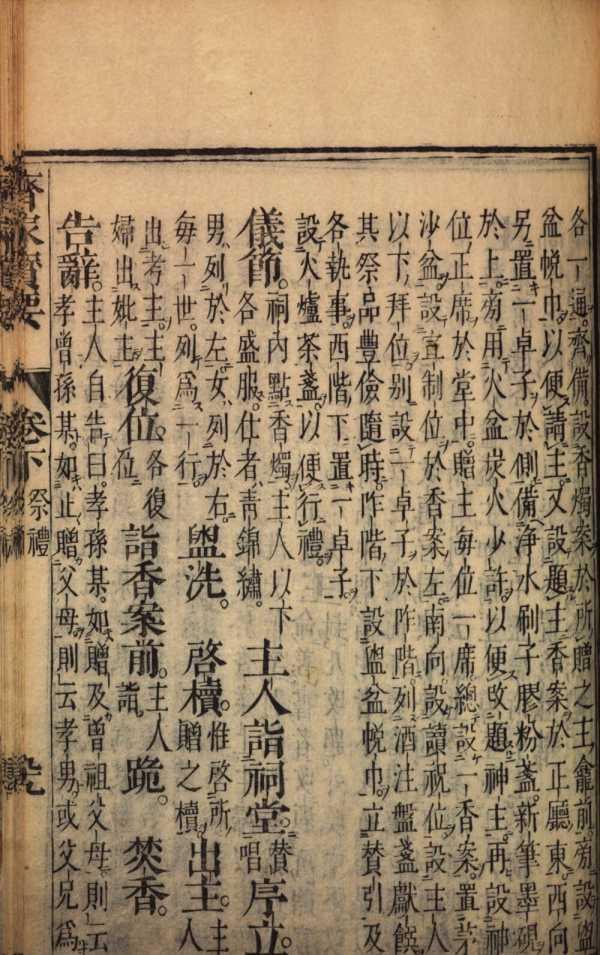 各一通。齊備。設香燭案於所贈之主龕前。旁設盥
盆帨巾。以便請主。又設題主香案於正廳。東西向
另置一卓子於側。備淨水刷子膠粉盞。新筆墨硯
於上。旁用火盆炭火少許。以便改題神主。再設神
位正席於堂中。贈主每位一席。總設一香案。置茅
沙盆。設宣制位於香案左。南向設讀祝位。設主人
以下拜位。別設一卓子於阼階。列酒注盤盞獻饌
其祭品豐儉隨時。阼階下設盥盆帨巾。立贊引及
各執事。西階下置一卓子。
設火爐茶盞。以便行禮。
儀節。祠内點香燭。主人以下各盛服。仕者青錦繡。主人詣祠堂。贊唱序立。
男列於左。女列於右。每一世。列爲一行。盥洗。啓櫝。惟啓所贈之櫝出主。主人
出考主。主婦出妣主復位。各復位詣香案前。主人詣。跪。焚香。
告辭。主人自告曰。孝孫某。如贈及曾祖父母則云
孝曾孫某。如止贈父母則云孝男。或父兄爲
齊家寶要 卷下 祭禮